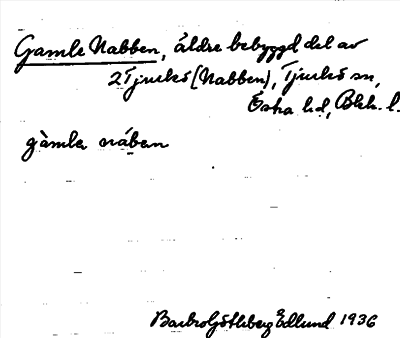 Gamle Nabben, äldre bebyggd del av
2 Tjurkö (Nabben), Tjurkö sn,
Östra hd, Blek. l.
gàmlə nábən
Barbro Götlxberg Edlund 1936